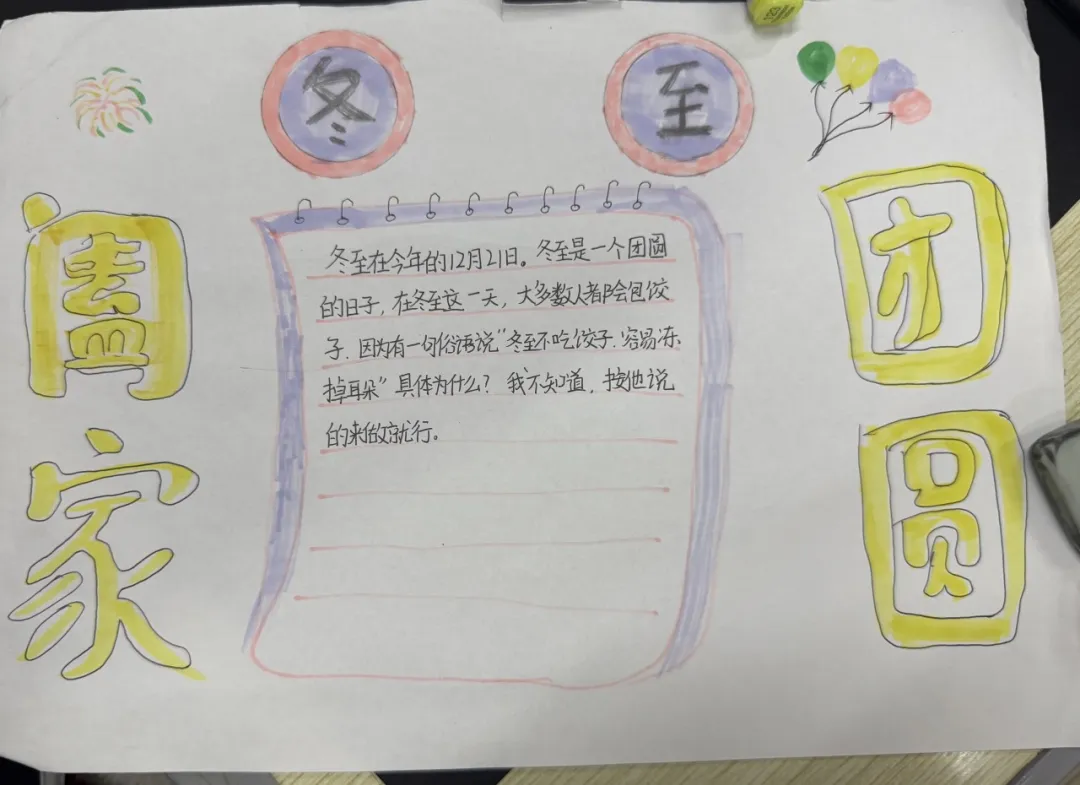 冬至
阖家
团圆
冬至在今年的12月21日。冬至是一个团圆
的日子，在冬至这一天，大多数人都会包饺
子．因为有一句俗语说“冬至不吃饺子．容易冻
掉耳朵”具体为什么？我不知道，按他说
的来做就行。